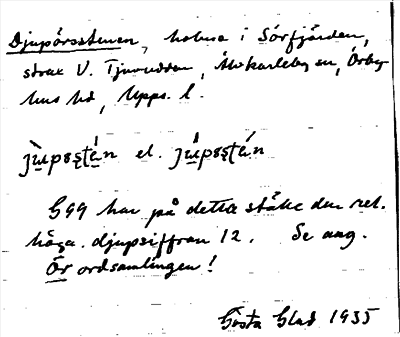 Djupörsstenen, holme i Sörfjärden,
strax V. Tjuvudden, Älvkarleby sn, Örby-
hus hd, Upps. l.
jùpsştén el. jùpsştén
GGG har på detta ställe den rel.
höga djupsiffran 12. Se ang.
Ör ordsamlingen!
Gösta Glad 1935